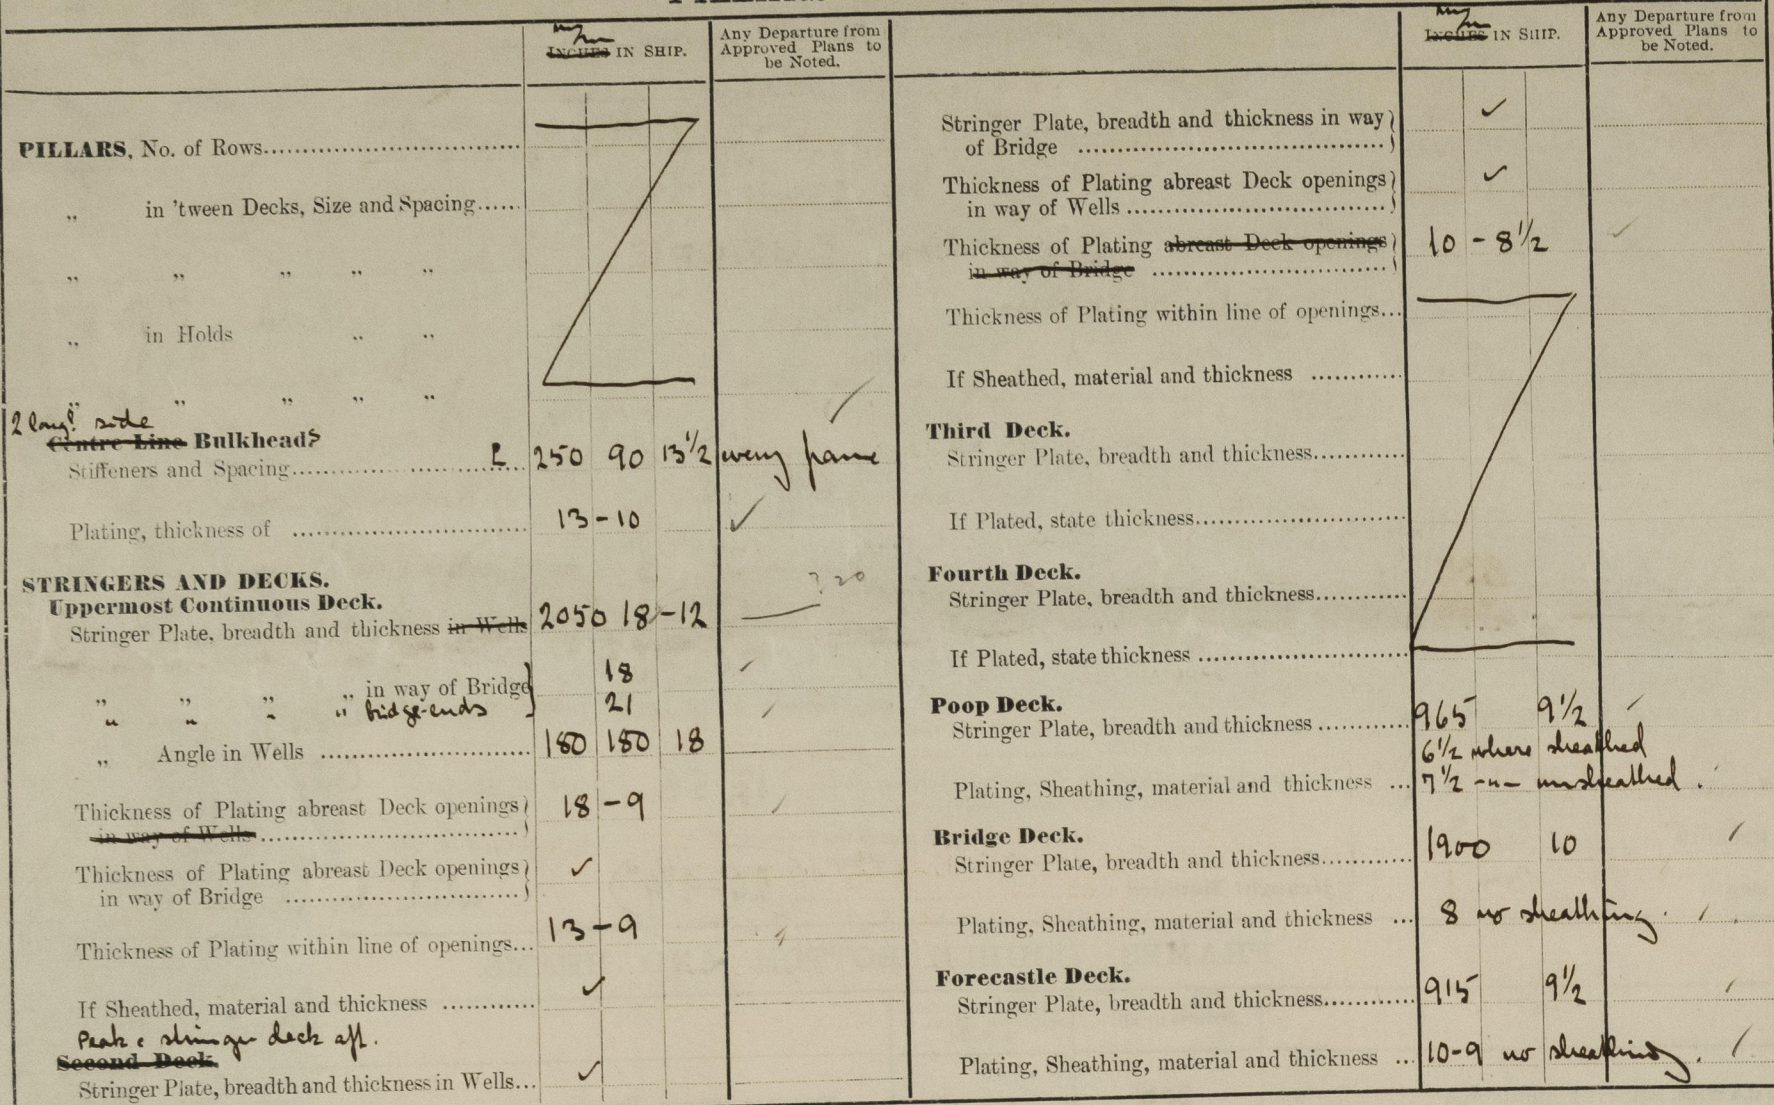 m/m
INCHES IN SHIP.
Any Departure from
Approved Plans to
be Noted.
PILLARS, No. of Rows
„ in 'tween Decks, Size and Spacing
„ „ „ „ „
„ in Holds „ „
„ „ „ „ „
2 longl side
Centre Line Bulkheads
Stiffeners and Spacing 250 90 13½ every frame
Plating, thickness of 13-10
STRINGERS AND DECKS.
Uppermost Continuous Deck.
? 20
Stringer Plate, breadth and thickness in Wells 2050 18-12
„ „ „ „ in way of Bridge 18
„ „ „ „ bridge-ends 21
„ Angle in Wells 180 180 18
Thickness of Plating abreast Deck openings 18-9
in way of Wells
Thickness of Plating abreast Deck openings ✓
in way of Bridge
Thickness of Plating within line of openings... 13-9
If Sheathed, material and thickness ✓
Peak & stringer deck aft.
Second Deck.
Stringer Plate, breadth and thickness in Wells... ✓
m/m
INCHES IN SHIP.
Any Departure from
Approved Plans to
be Noted.
Stringer Plate, breadth and thickness in way ✓
of Bridge
Thickness of Plating abreast Deck openings ✓
in way of Wells
Thickness of Plating abreast Deck openings 10-8½
in way of Bridge
Thickness of Plating within line of openings...
If Sheathed, material and thickness
Third Deck.
Stringer Plate, breadth and thickness
If Plated, state thickness
Fourth Deck.
Stringer Plate, breadth and thickness
If Plated, state thickness
Poop Deck.
Stringer Plate, breadth and thickness 965 9½
6½ where sheathed
Plating, Sheathing, material and thickness ... 7½ -"- unsheathed.
Bridge Deck.
Stringer Plate, breadth and thickness 1900 10
Plating, Sheathing, material and thickness ... 8 no sheathing.
Forecastle Deck.
Stringer Plate, breadth and thickness 915 9½
Plating, Sheathing, material and thickness ... 10-9 no sheathing.